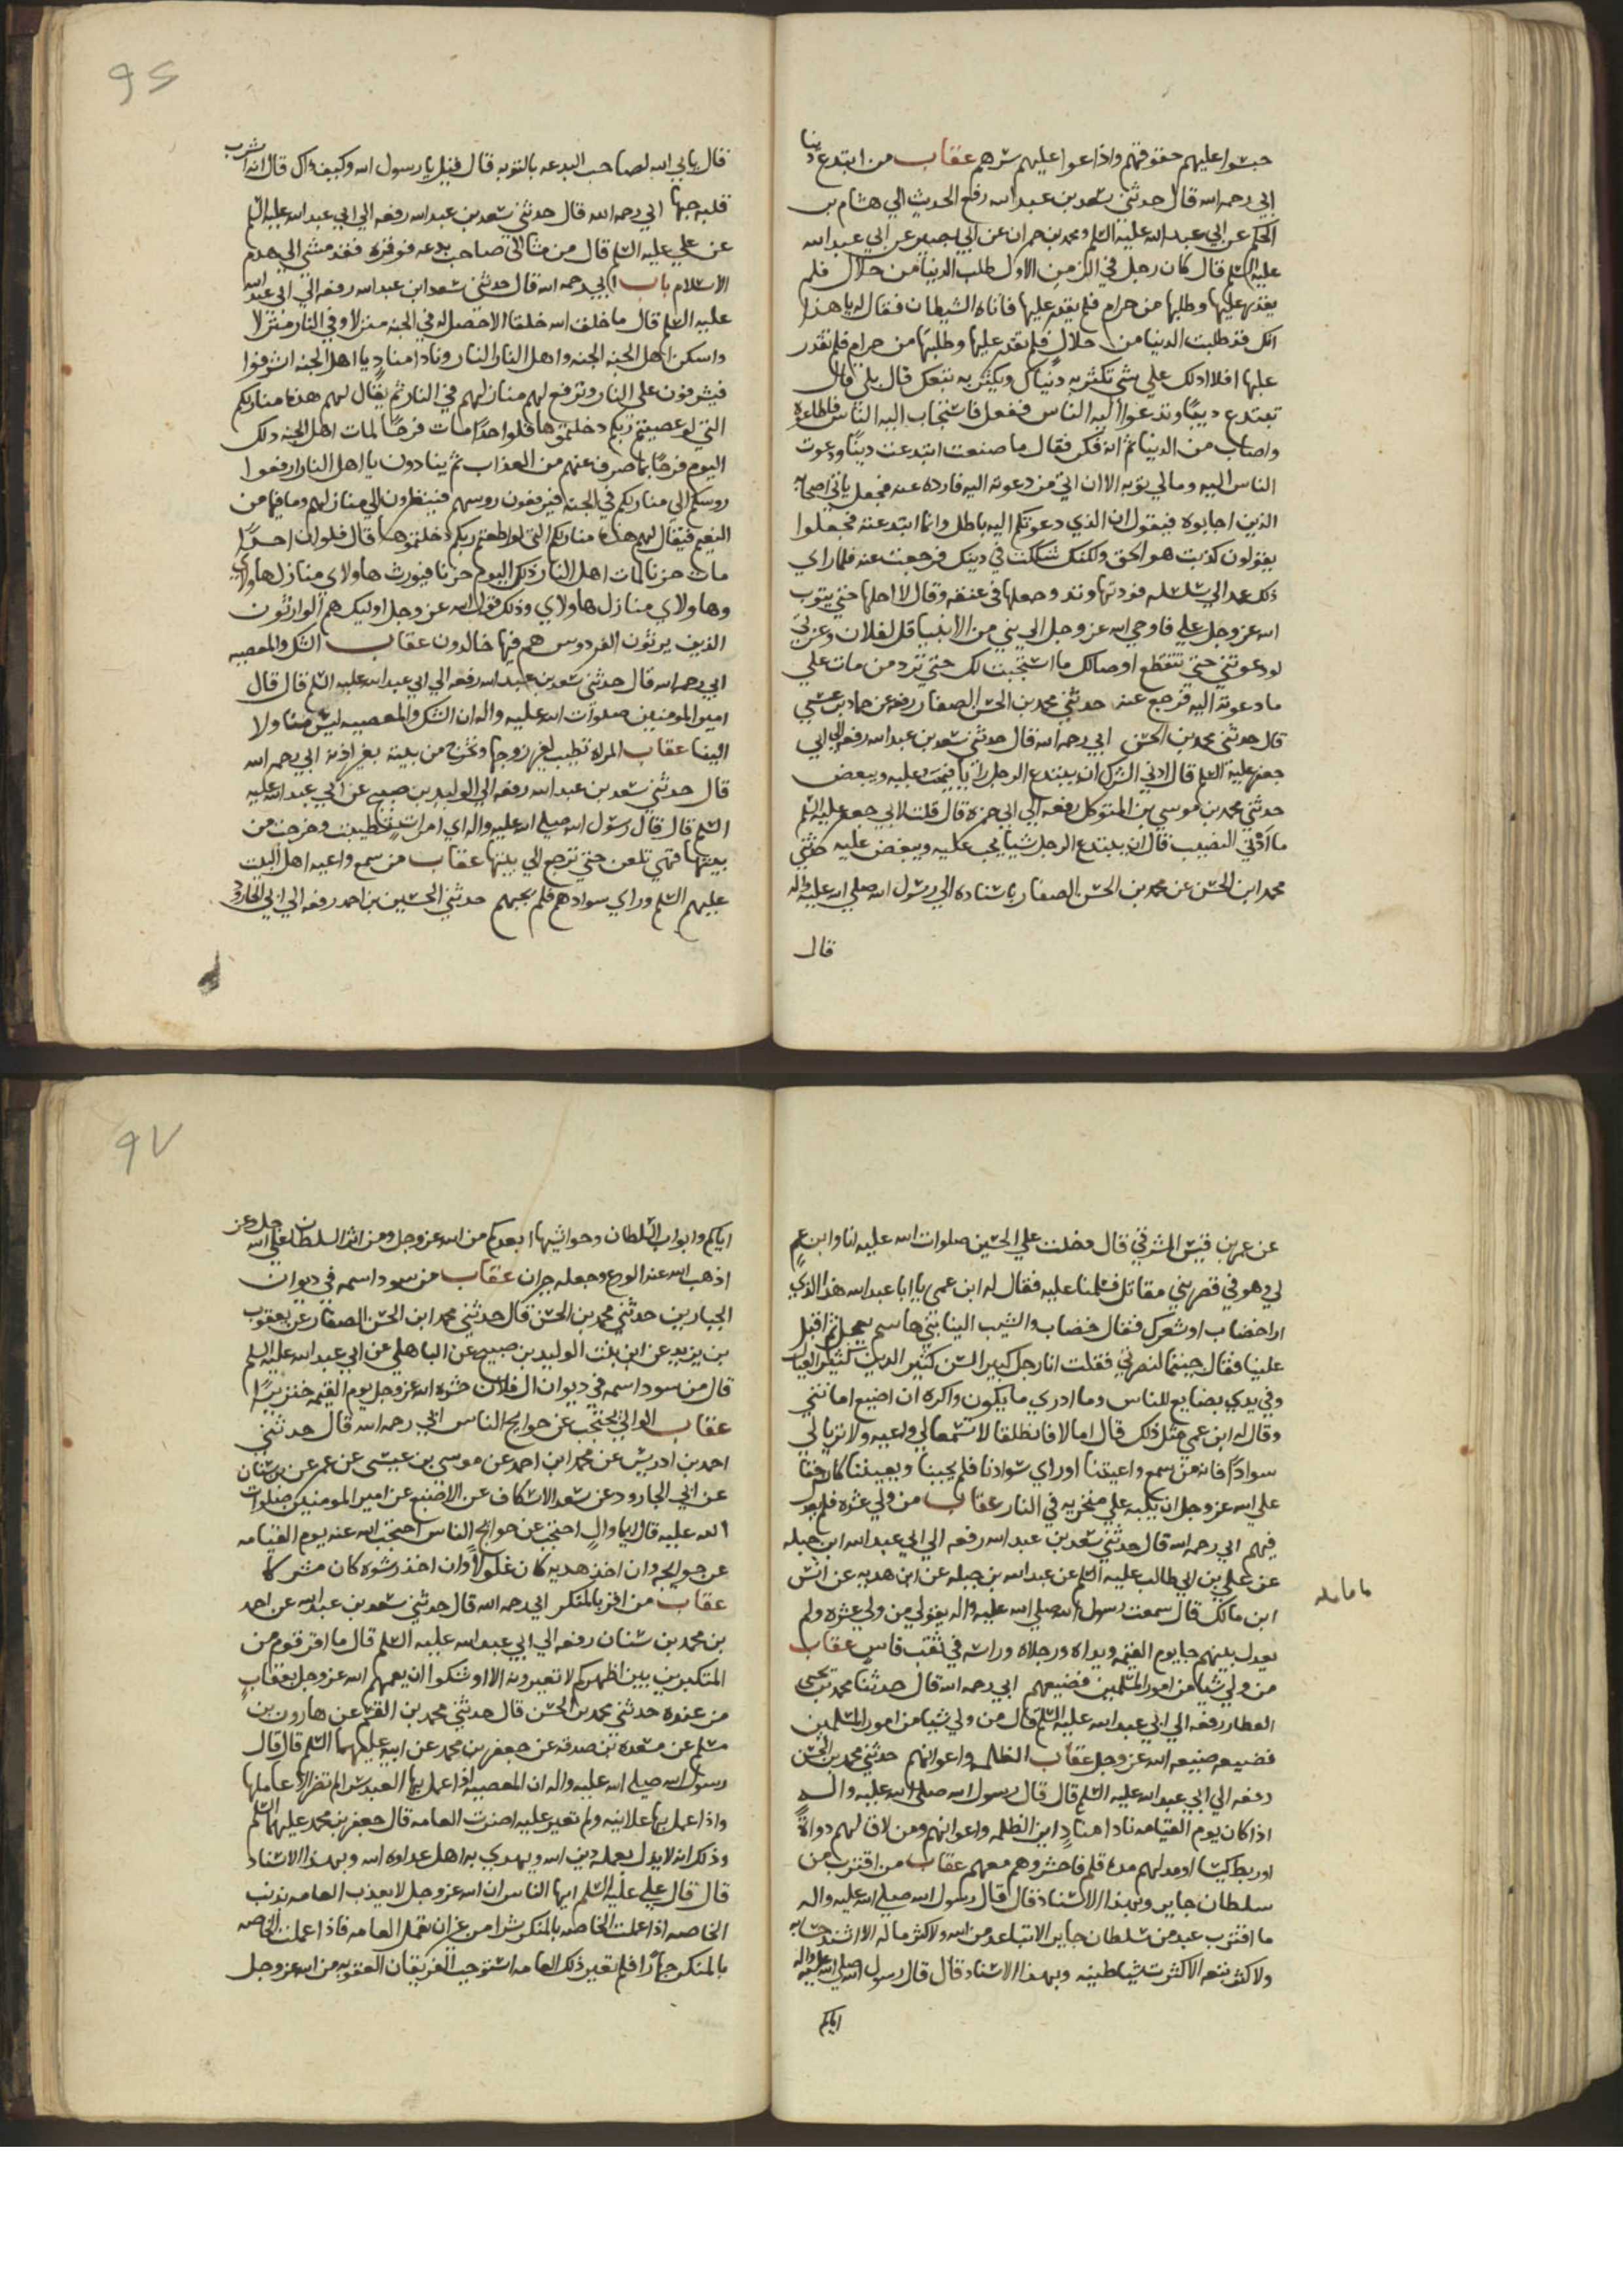 حبسوا عليهم حقوقهم واذاعوا عليهم سرهم عقاب من ابتدع دينا
ابي رحمه الله قال حدثني سعد بن عبد الله رفع الحديث الي هشام بن
الحكم عن ابي عبد الله عليه السلم ومحمد بن حمران عن ابي بصير عن ابي عبد الله
عليه السلم قال كان رجل في الزمن الاول طلب الدنيا من حلال فلم
يقدر عليها وطلبها من حرام فلم يقدر عليها فاتاه الشيطان فقال له يا هذا
انك قد طلبت الدنيا من حلال فلم تقدر عليها وطلبتها من حرام فلم تقدر
عليها افلا ادلك علي شي تكثر به دنياك ويكثر به تبعك قال بلي قال
تبتدع دينا وتدعوا اليه الناس ففعل فاستجاب اليه الناس فاطاعوه
واصاب من الدنيا ثم انه فكر فقال ما صنعت ابتدعت دينا ودعوت
الناس اليه وما لي توبه الا ان اتي من دعوته اليه فارده عنه فجعل ياتي اصحابه
الذين اجابوه فيقول ان الذي دعوتكم اليه باطل وانما ابتدعته فجعلوا
يقولون كذبت هو الحق ولكنك شككت في دينك فرجعت عنه فلما راي
ذلك عمد الي سلسله فوتد لها وتد وجعلها في عنقه وقال لا احلها حتي يتوب
الله عز وجل علي فاوحي الله عز وجل الي نبي من الانبيا قل لفلان وعزتي
لو دعوتني حتي تتقطع اوصالك ما استجبت لك حتي ترد من مات علي
ما دعوته اليه فرجع عنه حدثني محمد بن الحسن الصفار رفعه عن حماد بن عيسي
قال حدثني محمد بن الحسن ابي رحمه الله قال حدثني سعد بن عبد الله رفعه الي ابي
جعفر عليه السلم قال ادني الشرك ان يبتدع الرجل رايا فيحب عليه ويبغض
حدثني محمد بن موسي بن المتوكل رفعه الي ابي حمزه قال قلت لابي جعفر عليه السلم
ما ادني النصب قال ان يبتدع الرجل شيا يحب عليه ويبغض عليه حدثني
محمد ابن الحسن عن محمد بن الحسن الصفار باسناده الي رسول الله صلي الله عليه واله
قال
قال يابي الله لصاحب البدعه بالتوبه قال قيل يا رسول الله وكيف ذاك قال انه اشرب
قلبه حبها ابي رحمه الله قال حدثني سعد بن عبد الله رفعه الي ابي عبد الله عليه السلم
عن علي عليه السلم قال من مشا الي صاحب بدعه فوقره فقد مشي الي هدم
الاسلام باب ابي رحمه الله قال حدثني سعد ابن عبد الله رفعه الي ابي عبد الله
عليه السلم قال ما خلق الله خلقا الا حصل له في الجنه منزلا وفي النار منزلا
داسكن اهل الجنه الجنه واهل النار النار ونادا مناد يا اهل الجنه اشرفوا
فيشرفون علي النار وترفع لهم منازلهم في النار ثم يقال لهم هذه منازلكم
التي لو عصيتم ربكم دخلتموها فلو احدا مات فرحا لمات اهل الجنه ذلك
اليوم فرحا بما صرف عنهم من العذاب ثم ينادون يا اهل النار ارفعوا
روسكم الي منازلكم في الجنه فيرفعون روسهم فينظرون الي منازلهم وما فيها من
النعيم فيقال لهم هذه منازلكم التي لو اطعتم ربكم دخلتموها قال فلو ان احدا
مات حزنا لمات اهل النار ذلك اليوم حزنا فيورث هاولاي منازل هاولاي
وهاولاي منازل هاولاي وذلك قول الله عز وجل اوليك هم الوارثون
الذين يرثون الفردوس هم فيها خالدون عقاب الشك والمعصيه
ابي رحمه الله قال حدثني سعد بن عبد الله رفعه الي ابي عبد الله عليه السلم قال قال
امير المومنين صلوات الله عليه واله ان الشك والمعصيه ليس منا ولا
الينا عقاب المراه تطيب لغير زوجها وتخرج من بيته بغير اذنه ابي رحمه الله
قال حدثني سعد بن عبد الله رفعه الي الوليد بن صبيح عن ابي عبد الله عليه
السلم قال قال رسول الله صلي الله عليه واله اي امراه تطيبت وخرجت من
بيتها فهي تلعن حتي ترجع الي بيتها عقاب من سمع واعيه اهل البيت
عليهم السلم وراي سوادهم فلم يجبهم حدثني الحسين بن احمد رفعه الي ابي الجارود
عن عمر بن قيس المشرقي قال دخلت علي الحسين صلوات الله عليه انا وابن عم
لي وهو في قصر بني مقاتل فسلمنا عليه فقال له ابن عمي يا ابا عبد الله هذا الذي
ارا خضاب او شعرك فقال خضاب والشيب الينا بني هاشم يعجل ثم اقبل
علينا فقال جيتما لنصرتي فقلت انا رجل كبير السن كثير الدين كثير العيال
وفي يدي بضايع للناس وما ادري ما يكون واكره ان اضيع امانتي
وقال له ابن عمي مثل ذلك قال اما لا فانطلقا لا تسمعا لي واعيه ولا تريا لي
سوادا فانه من سمع واعيتنا او راي سوادنا فلم يجبنا ويعيننا كان حقا
علي الله عز وجل ان يكبه علي منخريه في النار عقاب من ولي عشره فلم يعدل
فيهم ابي رحمه الله قال حدثني سعد بن عبد الله رفعه الي ابي عبد الله ابن جبله
عن علي بن ابي طالب عليه السلم عن عبد الله بن جبله عن ابن هدبه عن انس
ابن مالك قال سمعت رسول الله صلي الله عليه واله يقول من ولي عشره ولم
يعدل بينهم جا يوم القيمه ويداه ورجلاه وراسه في ثقب فاس عقاب
من ولي شيا من امور المسلمين فضيعهم ابي رحمه الله قال حدثنا محمد بن يحيي
العطار رفعه الي ابي عبد الله عليه السلم قال من ولي شيا من امور المسلمين
فضيعه ضيعه الله عز وجل عقاب الظلمه واعوانهم حدثني محمد بن الحسن
رفعه الي ابي عبد الله عليه السلم قال قال رسول الله صلي الله عليه واله
اذا كان يوم القيامه نادا مناد اين الظلمه واعوانهم ومن لاق لهم دواة
او ربط كيسا او مد لهم مدة قلم فاحشروهم معهم عقاب من اقترب من
سلطان جاير وبهذا الاسناد قال قال رسول الله صلي الله عليه واله
ما اقترب عبد من سلطان جاير الا تباعد من الله ولا كثر ماله الا اشتد حسابه
ولا كثر تبعه الا كثرت شياطينه وبهذا الاسناد قال قال رسول الله صلي الله عليه واله
اياكم
اياكم وابواب السلطان وحواشيها ابعدكم من الله عز وجل ومن اثر السلطان علي الله عز وجل
اذهب الله عنه الورع وجعله حيران عقاب من سود اسمه في ديوان
الجبارين حدثني محمد بن الحسن قال حدثني محمد ابن الحسن الصفار عن يعقوب
بن يزيد عن ابن بنت الوليد بن صبيح عن الباهلي عن ابي عبد الله عليه السلم
قال من سود اسمه في ديوان ال فلان حشره الله عز وجل يوم القيمه خنزيرا
عقاب الوالي يحتجب عن حوايج الناس ابي رحمه الله قال حدثني
احمد بن ادريس عن محمد ابن احمد عن موسي بن عيسي عن عمر عن بن سنان
عن ابي الجارود عن سعد الاسكاف عن الاصبغ عن امير المومنين صلوات
الله عليه قال ايما وال احتجب عن حوايج الناس احتجب الله عنه يوم القيامه
عن حوايجه وان اخذ هديه كان غلولا وان اخذ رشوه كان مشركا
عقاب من اقر بالمنكر ابي رحمه الله قال حدثني سعد بن عبد الله عن احمد
بن محمد بن سنان رفعه الي ابي عبد الله عليه السلم قال ما اقر قوم من
المنكر بين بين اظهركم لا تعيرونه الا اوشكوا ان يعمهم الله عز وجل بعقاب
من عنده حدثني محمد بن الحسن قال حدثني محمد بن القسم عن هارون بن
مسلم عن مسعده بن صدقه عن جعفر بن محمد عن ابيه عليهما السلم قال قال
رسول الله صلي الله عليه واله ان المعصيه اذا عمل بها العبد سرا لم تضر الا عاملها
واذا عمل بها علانيه ولم تعير عليه اضرت العامه قال جعفر بن محمد عليهما السلم
وذلك انه لا يدل بعمله دين الله ويهدي به اهل عداوه الله وبهذا الاسناد
قال قال علي عليه السلم ايها الناس ان الله عز وجل لا يعذب العامه بذنب
الخاصه اذا عملت الخاصه بالمنكر سرا من غير ان تعلم العامه فاذا عملت الخاصه
بالمنكر جهارا فلم تعير ذلك العامه استوجب الفريقان العقوبه من الله عز وجل